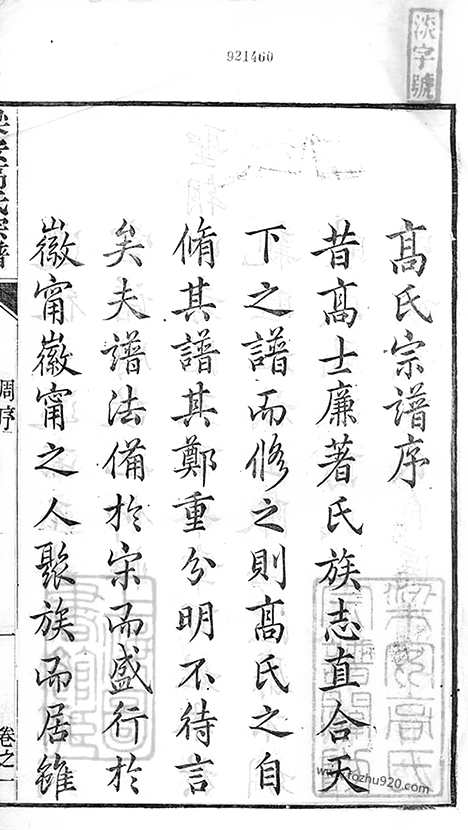 921460
淡字號
高氏宗譜序
昔高士廉著氏族志直合天
下之譜而修之則高氏之自
脩其譜其鄭重分明不待言
矣夫譜法備於宋而盛行於
徽甯徽甯之人聚族而居雖
梁安高氏宗譜
周序
卷之一
梁安高氏
www.rozhu920.com